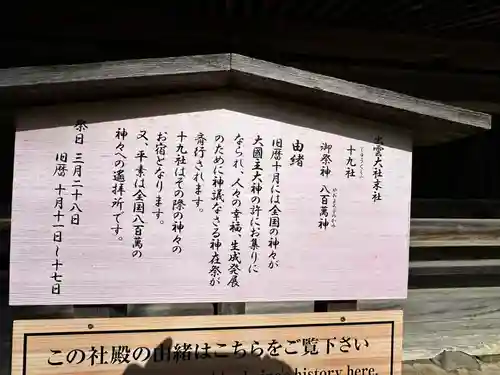 出雲大社末社
十九社
じゅうくしゃ
御祭神 八百萬神
やおよろずのかみ
由緒
旧暦十月には全国の神々が
大國主大神の許にお集りに
なられ、人々の幸福、生成発展
のために神議なさる神在祭が
斉行されます。
十九社はその際の神々の
お宿となります。
又、平素は全国八百萬の
神々への遙拝所です。
祭日 三月二十八日
旧暦 十月十一日〜十七日
この社殿の由緒はこちらをご覧下さい
history here.